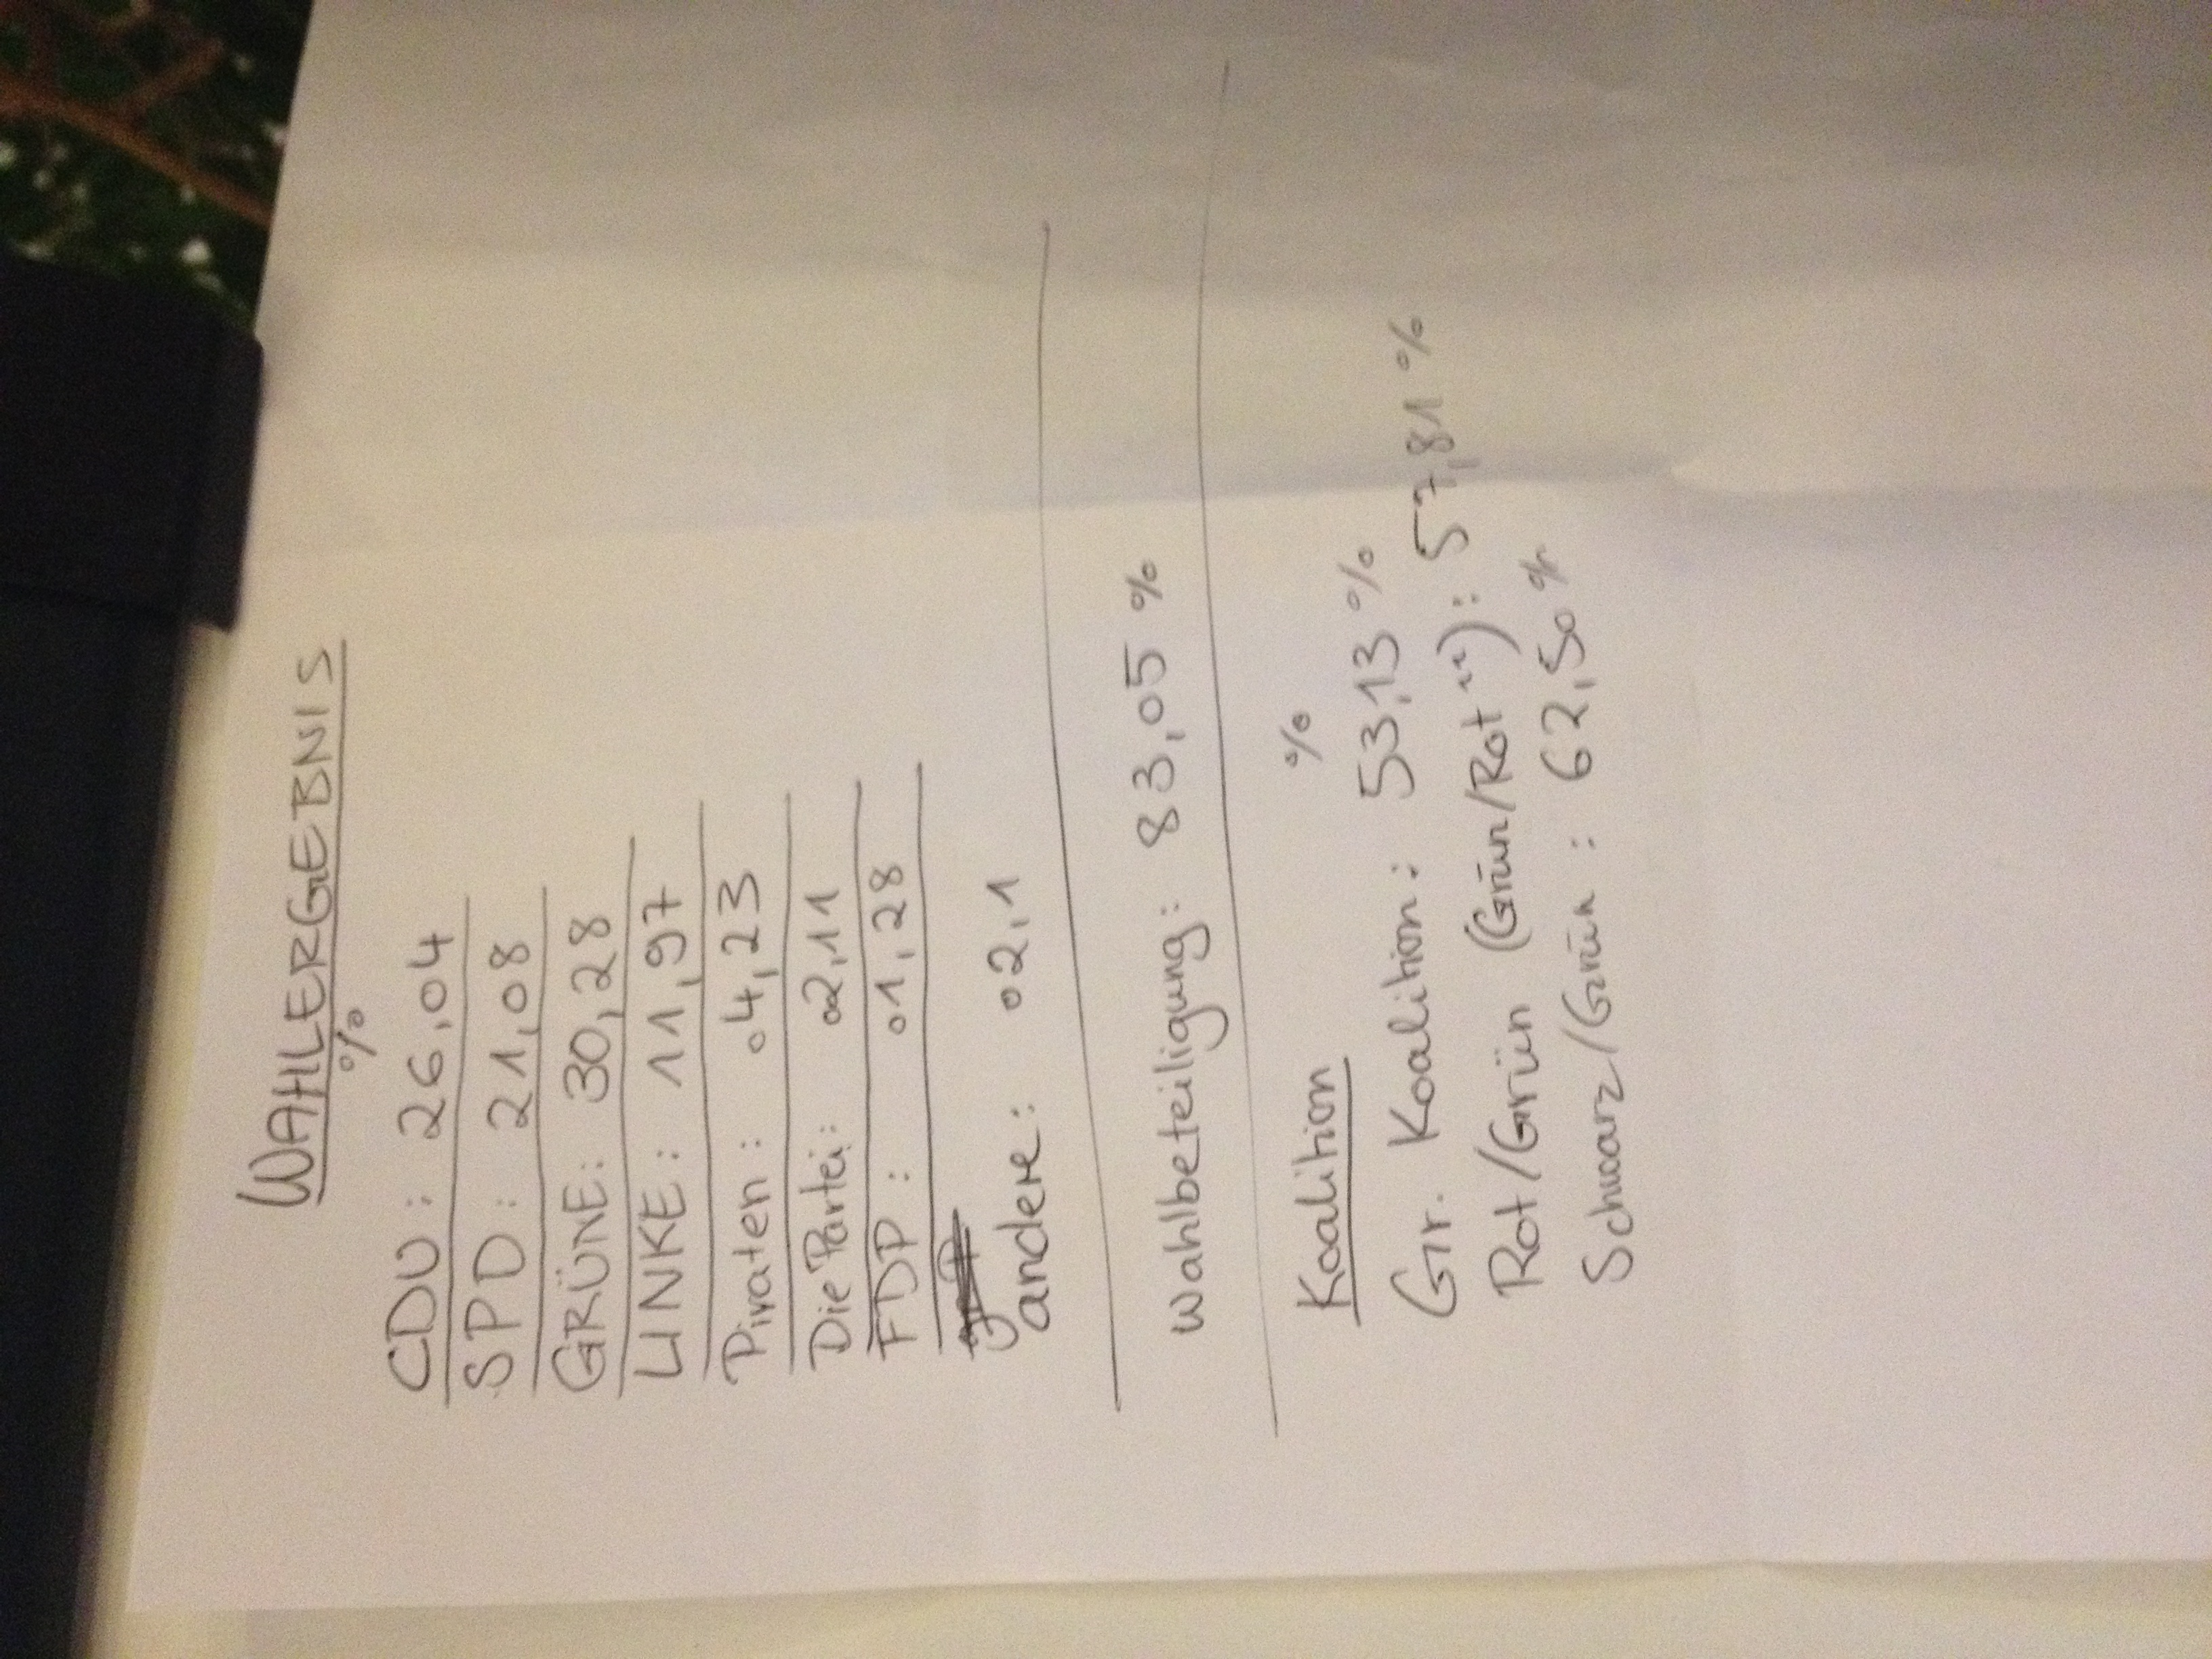 WAHLERGEBNIS
%
CDU: 26,04
SPD: 21,08
GRÜNE: 30,28
LINKE: 11,97
Piraten: 04,23
Die Partei: 02,11
FDP: 01,28
andere: 02,1
Wahlbeteiligung: 83,05 %
Koalition %
Gr. Koalition: 53,13 %
Rot/Grün (Grün/Rot ^^): 57,81 %
Schwarz/Grün: 62,50 %